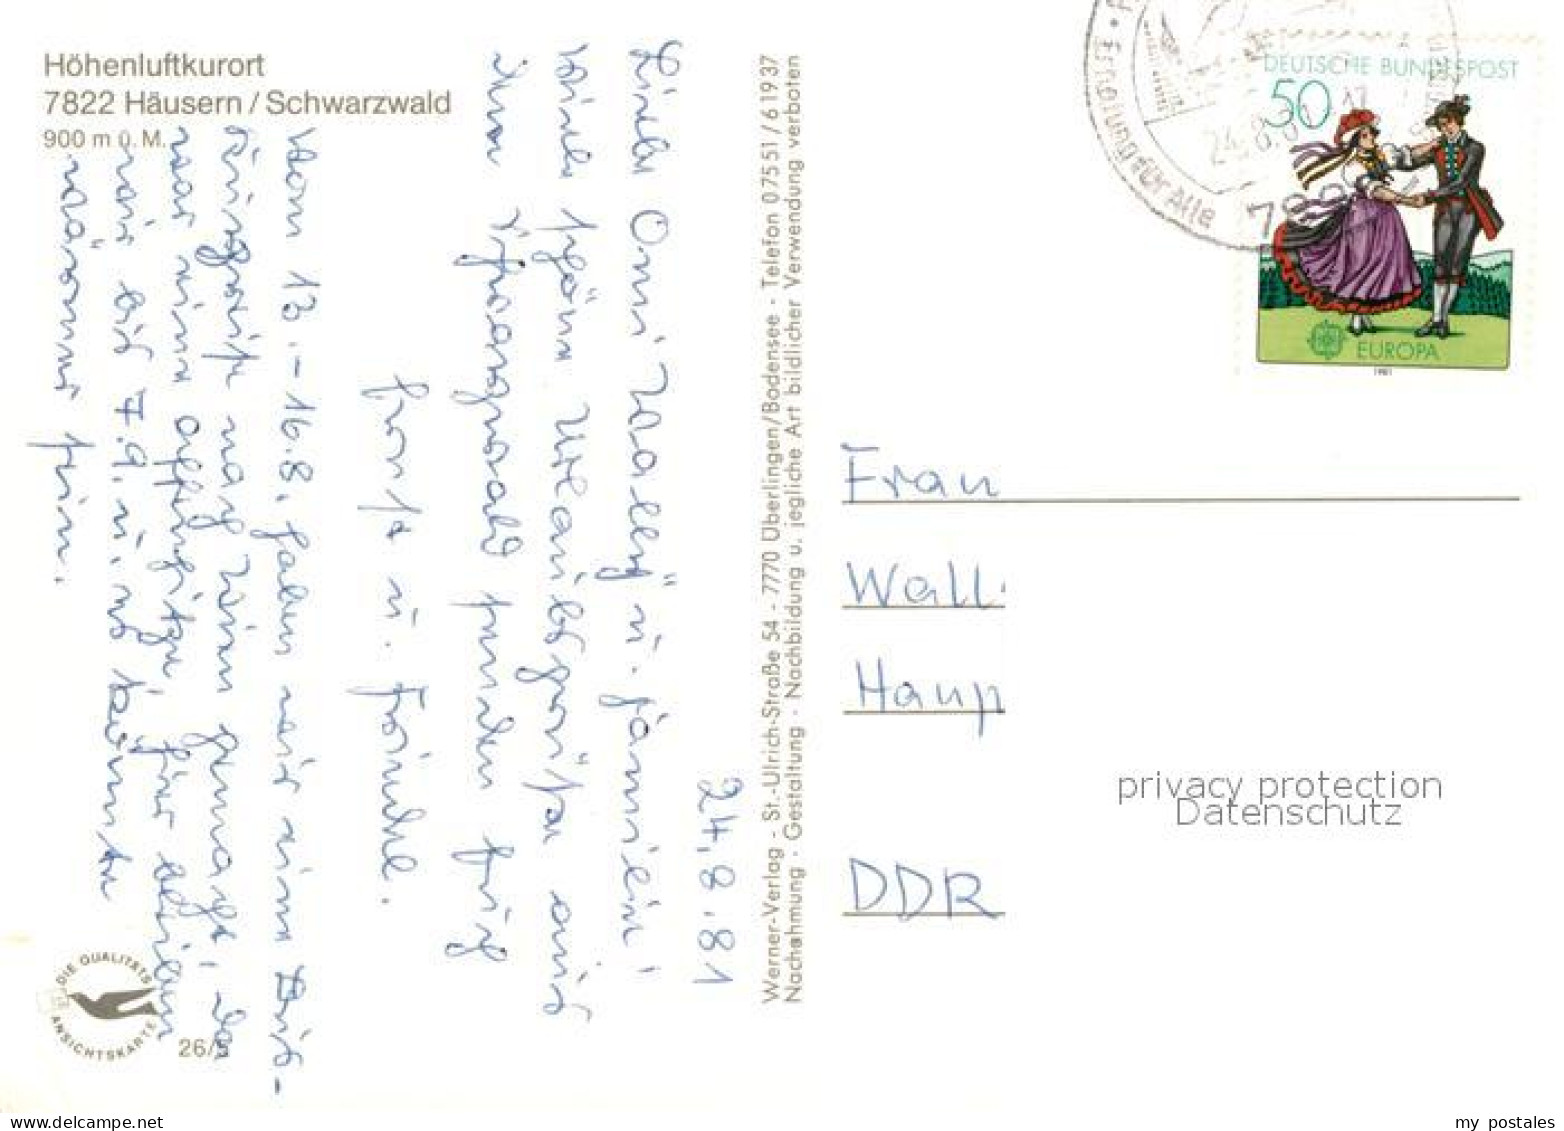 Höhenluftkurort
7822 Häusern / Schwarzwald
900 m ü. M.
24.8.81
Liebe Omi Wally u. Familie!
viele schöne Urlaubsgrüße aus
dem Schwarzwald senden Euch
Horst u. Friedel.
Vom 13.-16.8. haben wir eine Bus-
nach Wien gemacht, da
war eine
wir bis 7.9. u. es könnte
wärmer sein.
DIE QUALITÄTS
ANSICHTSKARTE
26/5
Werner-Verlag - St.-Ulrich-Straße 54 - 7770 Überlingen/Bodensee - Telefon 07551/61937
Nachahmung · Gestaltung · Nachbildung u. jegliche Art bildlicher Verwendung verboten
Erholung für Alle
24.8.81
DEUTSCHE BUNDESPOST
50
EUROPA
1981
Frau
Walli
Haup
DDR
privacy protection
Datenschutz
www.delcampe.net
my_postales